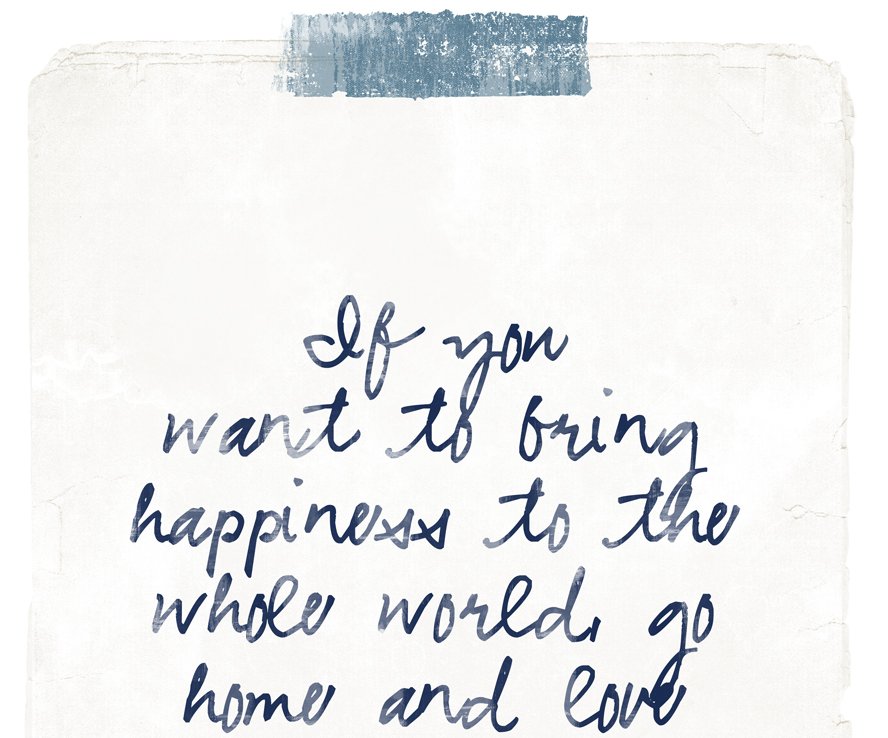 If you
want to bring
happiness to the
whole world, go
home and love